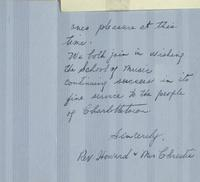 ones pleasure at this
time.
We both join in wishing
the School of Music
continuing success in its
fine service to the people
of Charlottetown
Sincerely,
Rev Howard & Mrs Christie